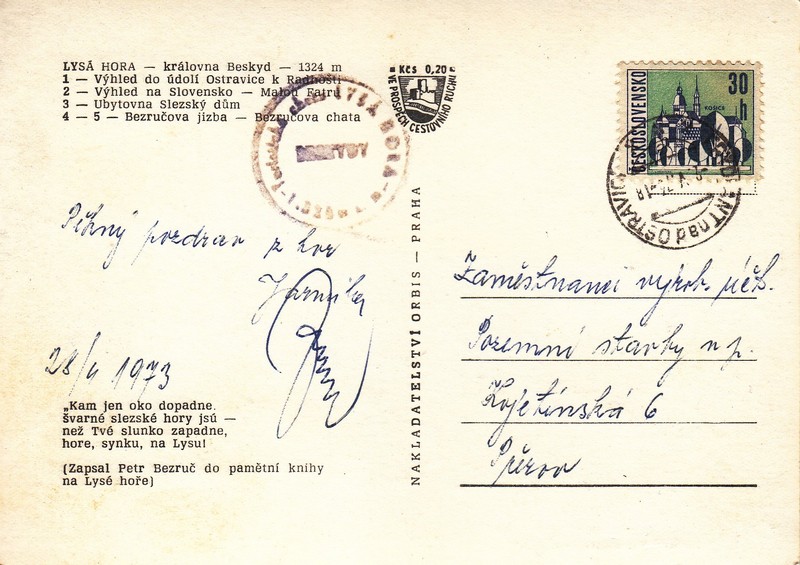 LYSÁ HORA — královna Beskyd — 1324 m
1 — Výhled do údolí Ostravice k Radhošti
2 — Výhled na Slovensko — Malou Fatru
3 — Ubytovna Slezský dům
4 — 5 — Bezručova jizba — Bezručova chata
Kčs 0,20
VE PROSPĚCH CESTOVNÍHO RUCHU
LYSÁ HORA
BESKYDY
ČESKOSLOVENSKO
30 h
KOŠICE
nad OSTRAVICÍ
Pěkný pozdrav z hor
28/4 1973
„Kam jen oko dopadne.
švarné slezské hory jsú —
než Tvé slunko zapadne,
hore, synku, na Lysu!
(Zapsal Petr Bezruč do pamětní knihy
na Lysé hoře)
NAKLADATELSTVÍ ORBIS — PRAHA
Zaměstnanci výrob. účt.
Pozemní stavby n.p.
Kojetínská 6
Přerov